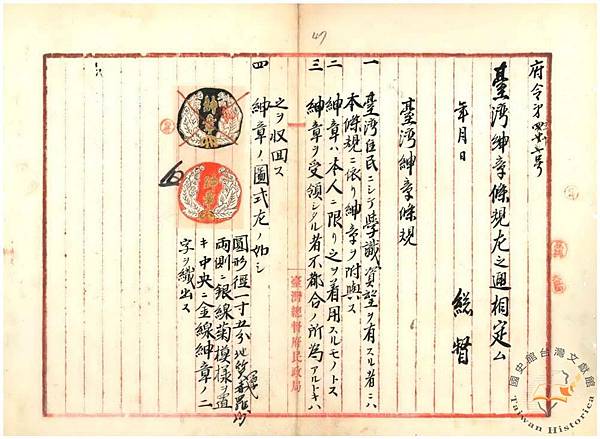 47
府令第四十七号
臺湾紳章條規左之通相定ム
年月日
総督
臺湾紳章條規
一 臺湾住民ニシテ学識資望ヲ有スル者ニハ
本條規ニ依リ紳章ヲ附與ス
二 紳章ハ本人ニ限リ之ヲ着用スルモノトス
三 紳章ヲ受領シタル者不都合ノ所為アルトキハ
之ヲ収回ス
四 紳章ノ圖式左ノ如シ
圓形径一寸五分地質
両側ニ銀線菊模様ヲ置
キ中央ニ金線紳章ノ二
字ヲ織出ス
紳章
紳章
臺灣總督府民政局
國史館台灣文獻館
Taiwan Historica